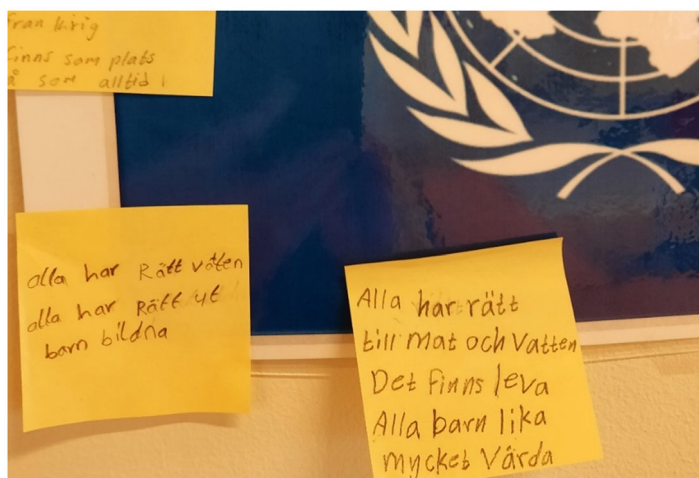 från krig
finns som plats
å som alltid!
alla har Rätt våten
alla har Rätt ut
barn bildna
Alla har rätt
till mat och Vatten
Det finns leva
Alla barn lika
mycket Värda